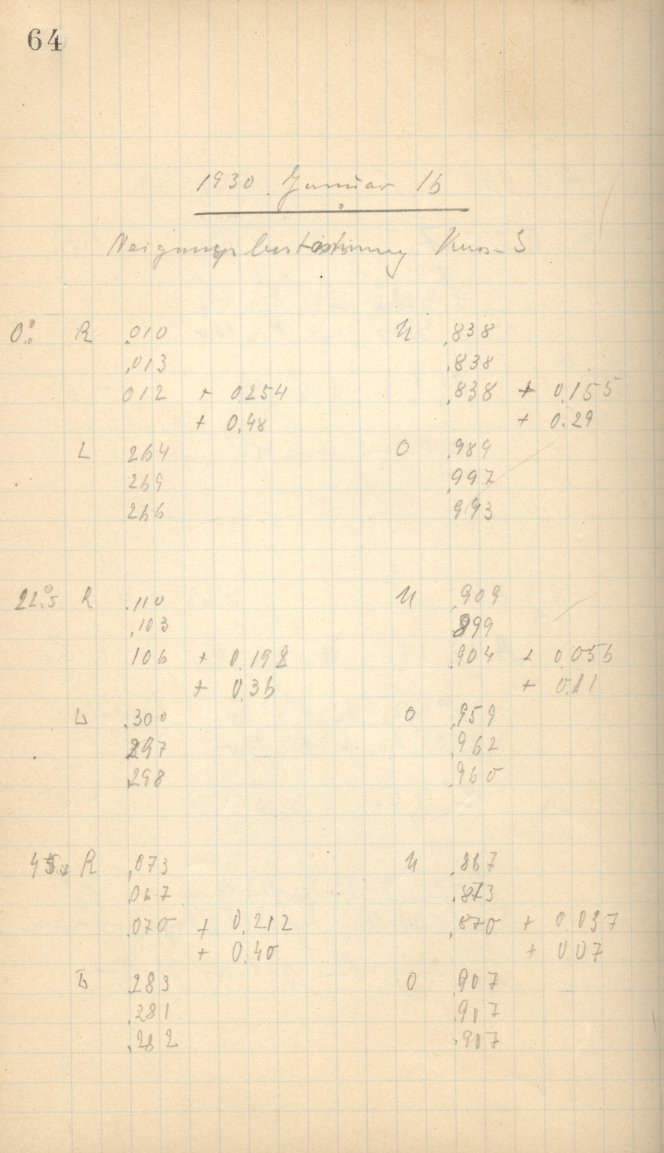 64
1930 Januar 16
Neigungsbestimmung Kuos-S
0°.0 R .010 U .838
.013 .838
012 + 0254 .838 + 0.155
+ 0.48 + 0.29
L 264 O .989
269 .997
266 993
22°.5 R .110 U .909
.103 899
106 + 0.192 .904 + 0.056
+ 0.36 + 0.11
L .300 O .959
297 .962
.298 .960
45.0 R .073 U .867
067 .873
.070 + 0.212 .870 + 0.037
+ 0.40 + 0.07
L .283 O .907
.281 .907
.282 .907